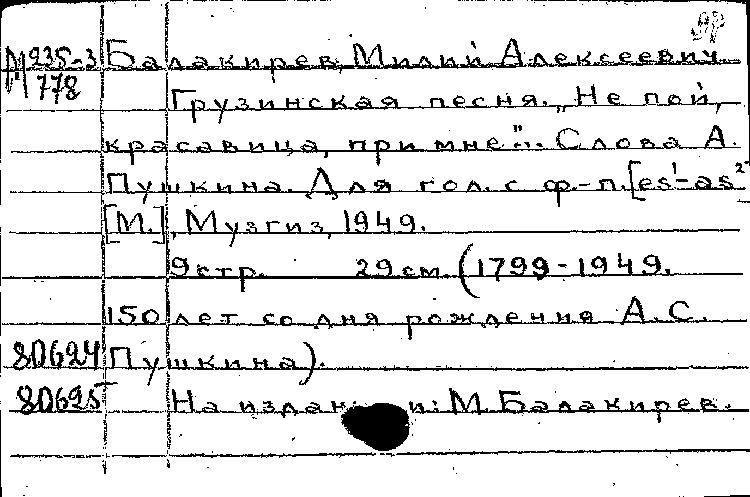 М 235-3 Балакирев, Милий Алексеевич.
778
Грузинская песня. „Не пой,
красавица, при мне"... Слова А.
Пушкина. Для гол. с ф.-п. [es¹-as²]
[М.], Музгиз, 1949.
9 стр. 29 см. (1799-1949.
150 лет со дня рождения А.С.
80624 Пушкина).
80625 На издан и: М. Балакирев.